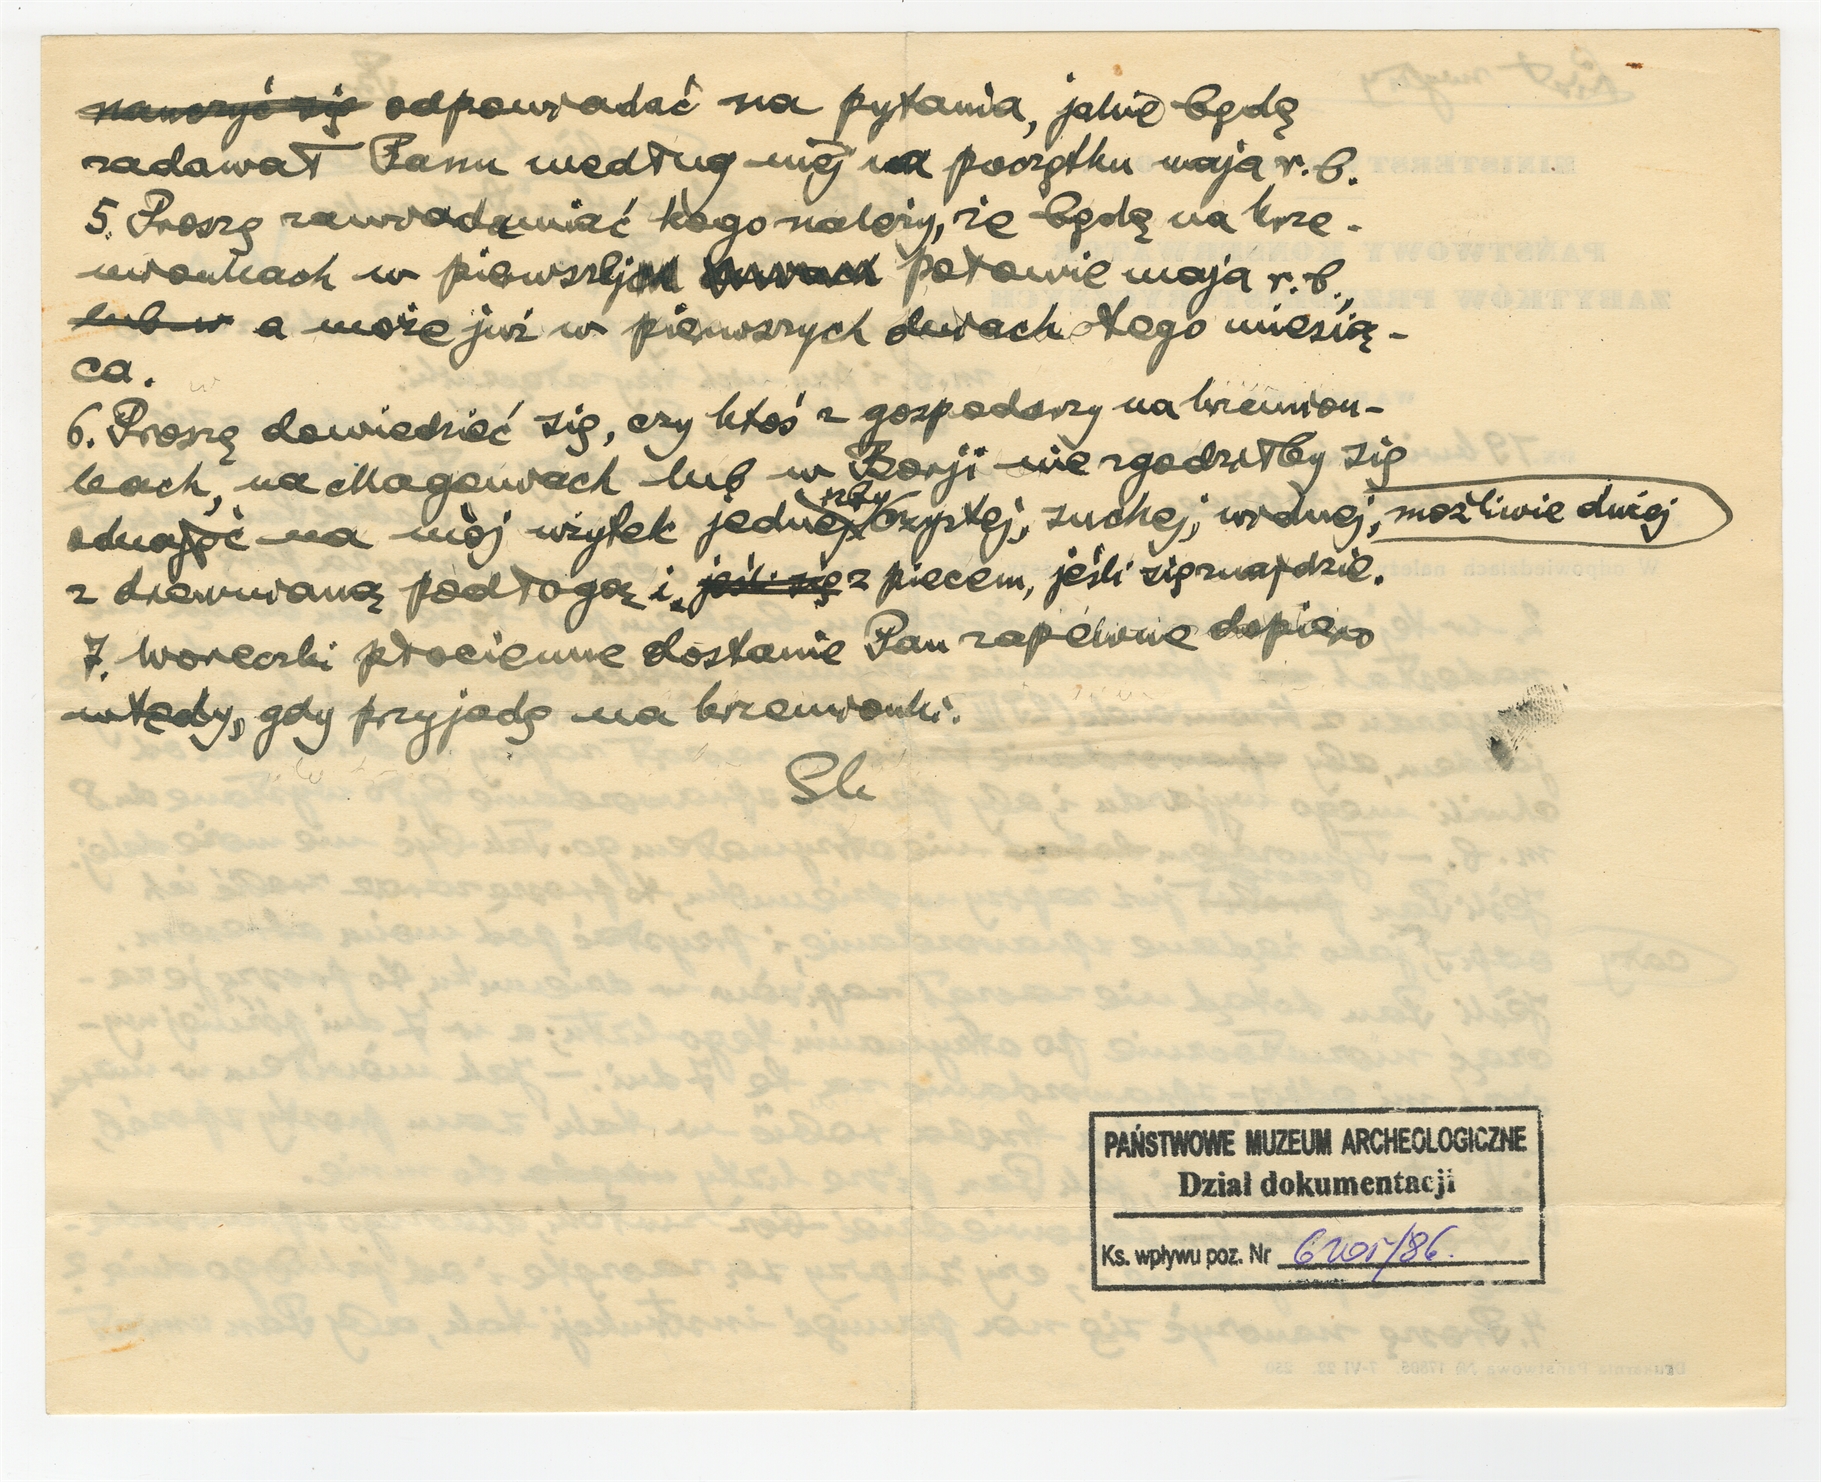 nauczyć się odpowiadać na pytania, jakie będę
zadawał Panu według niej na początku maja r.b.
5. Proszę zawiadamiać kogo należy, że będę na krze-
mionkach w pierwszej połowie maja r.b.,
lub w a może już w pierwszych dniach tego miesią-
ca.
6. Proszę dowiedzieć się, czy ktoś z gospodarzy na krzemion-
kach, na Magoniach lub w Borji nie zgodziłby się
odnająć na mój użytek jednej izby czystej, suchej, widnej, możliwie dużej
z drewnianą podłogą i, jeśli się z piecem, jeśli się znajdzie.
7. Woreczki płócienne dostanie Pan zapewne dopiero
wtedy, gdy przyjadę na krzemionki.
SK
PAŃSTWOWE MUZEUM ARCHEOLOGICZNE
Dział dokumentacji
Ks. wpływu poz. Nr